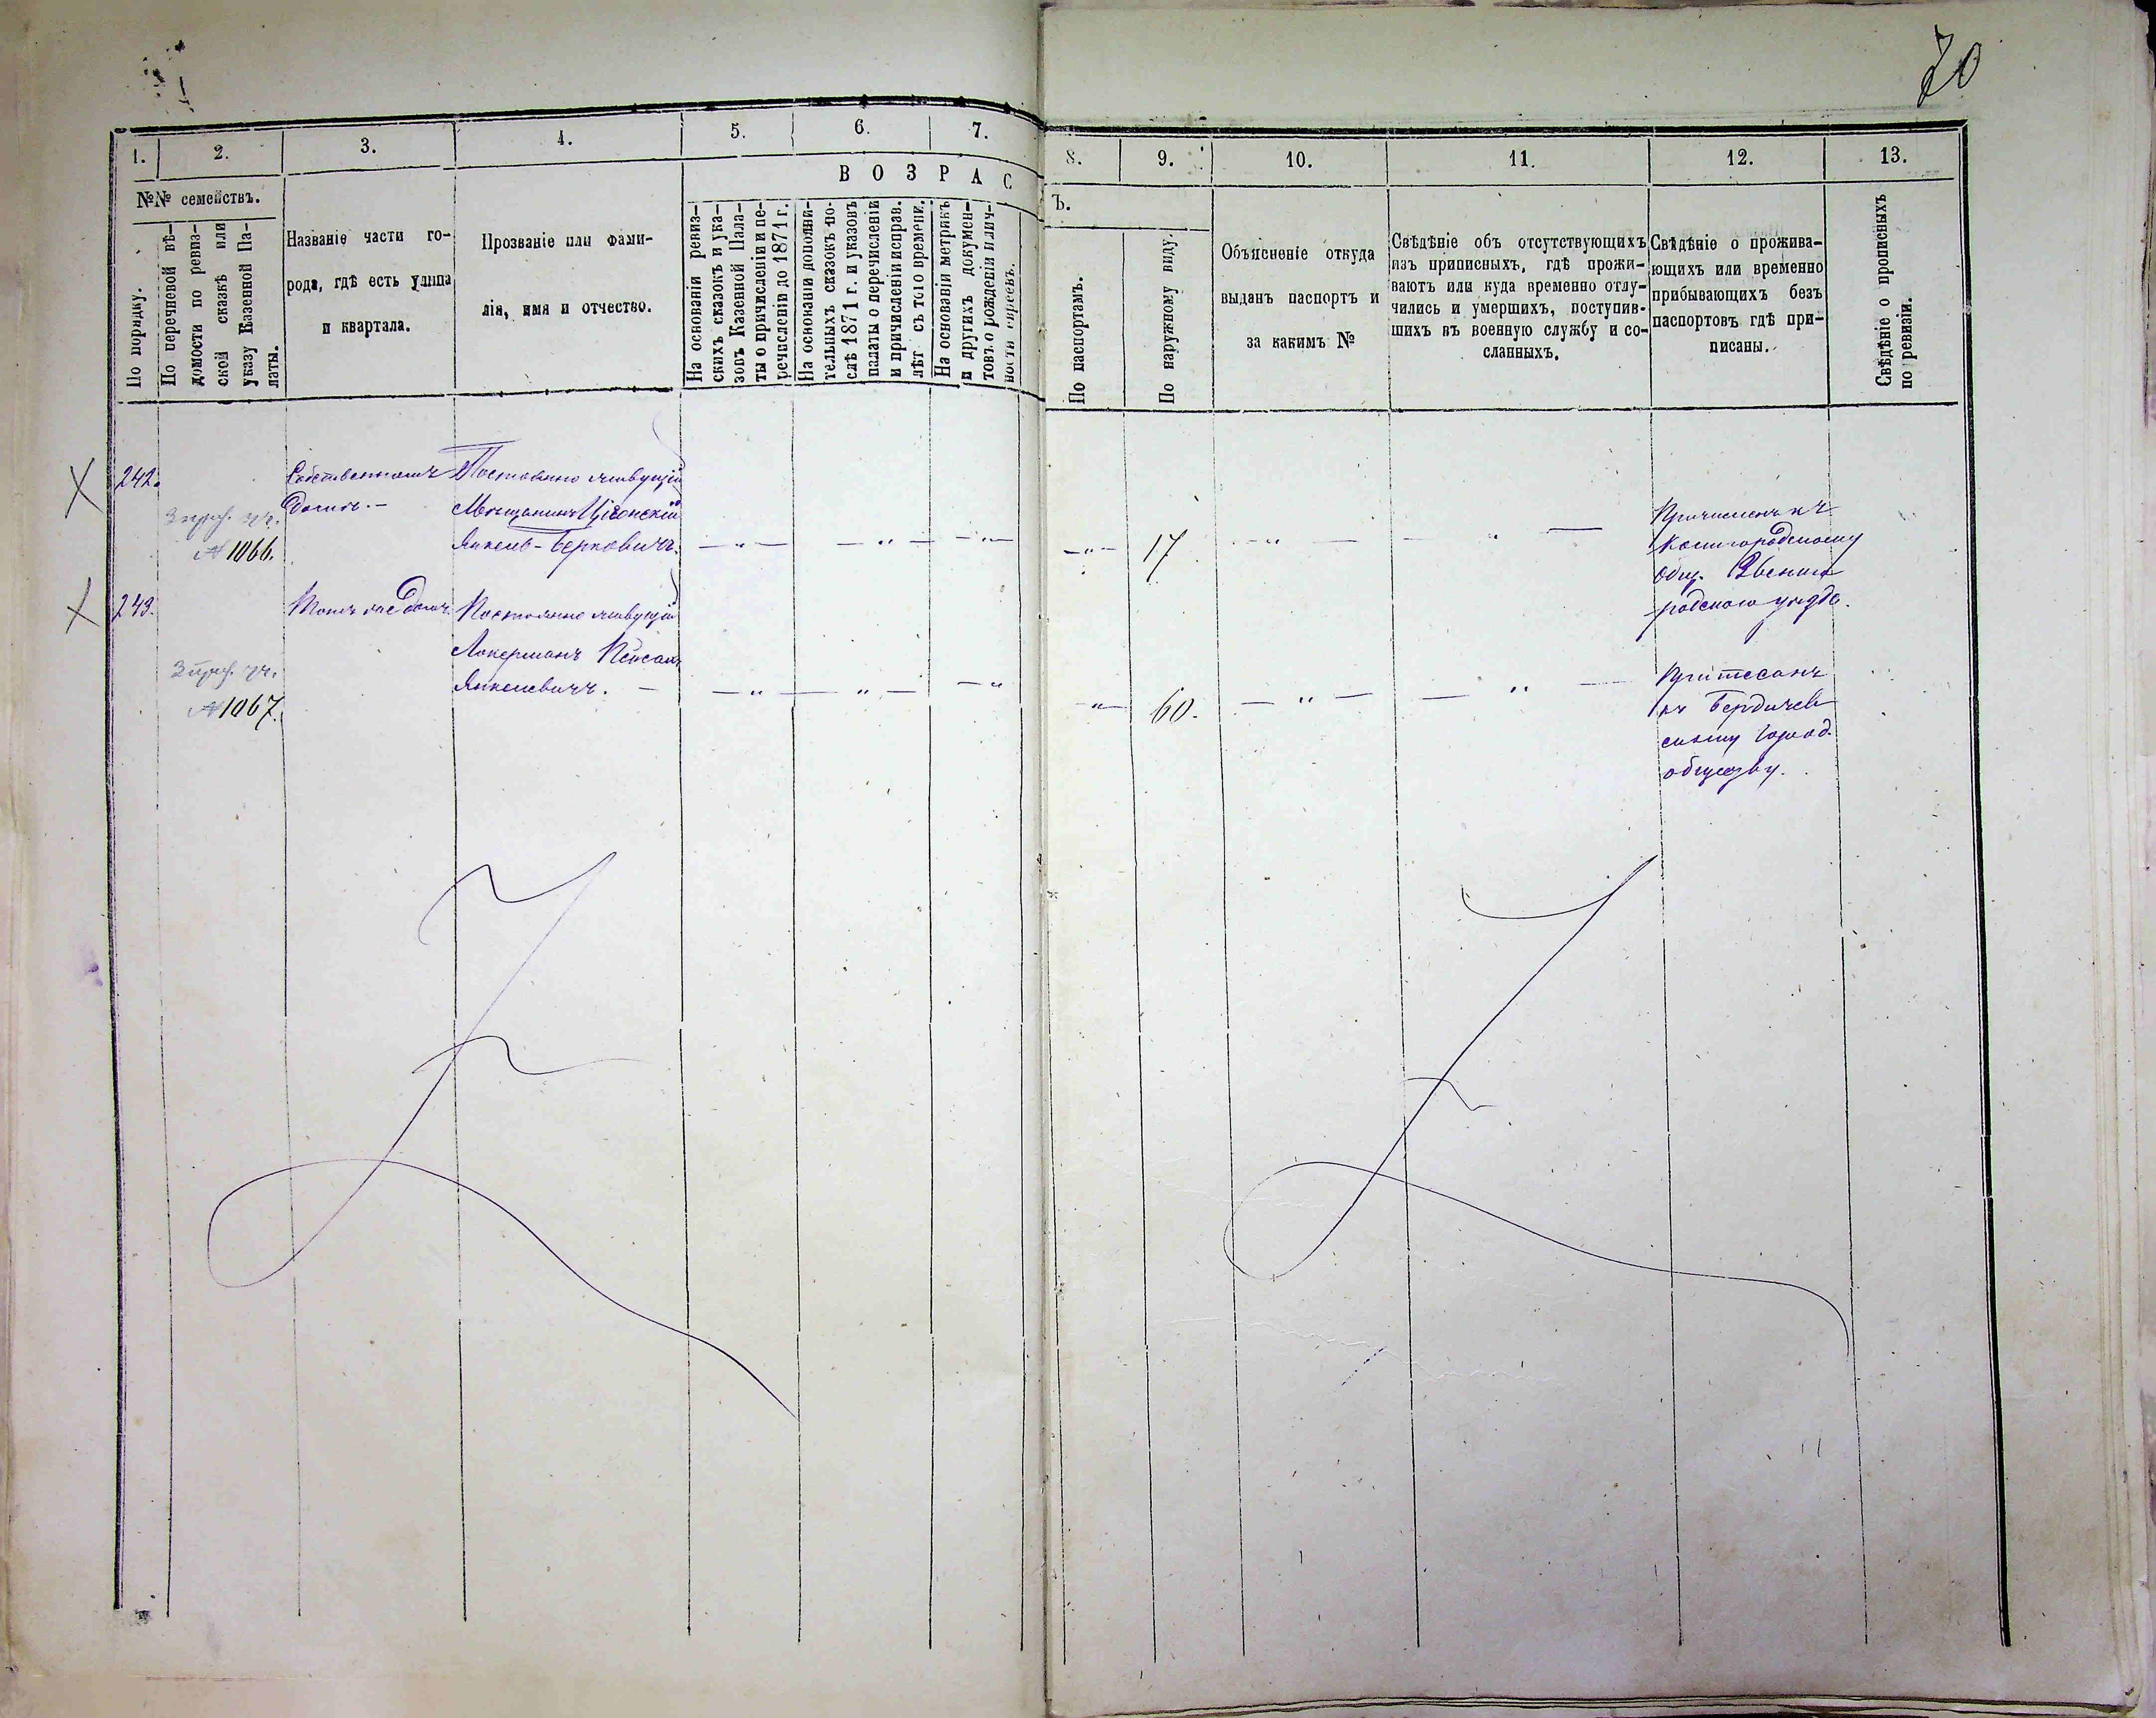 70
1.
2.
3.
4.
5.
6.
7.
8.
9.
10.
11.
12.
13.
№№ семействъ.
По порядку.
По перечневой вѣ-
домости по ревиз-
ской сказкѣ или
указу Казенной Па-
латы.
Названіе части го-
рода, гдѣ есть улица
и квартала.
Прозваніе или фами-
лія, имя и отчество.
ВОЗРАС
Ъ.
На основаніи ревиз-
скихъ сказокъ и ука-
зовъ Казенной Пала-
ты о причисленіи и пе-
речисленіи до 1871 г.
На основаніи дополни-
тельныхъ сказокъ по-
слѣ 1871 г. и указовъ
палаты о перечисленіи
и причисленіи исправ.
лѣт съ того времени.
На основаніи метрикъ
и другихъ докумен-
товъ о рожденіи и лич-
ности евреевъ.
По паспортамъ.
По наружному виду.
Объясненіе откуда
выданъ паспортъ и
за какимъ №
Свѣдѣніе объ отсутствующихъ
изъ приписныхъ, гдѣ прожи-
ваютъ или куда временно отлу-
чились и умершихъ, поступив-
шихъ въ военную службу и со-
сланныхъ.
Свѣдѣніе о прожива-
ющихъ или временно
прибывающихъ безъ
паспортовъ гдѣ при-
писаны.
Свѣдѣніе о прописныхъ
по ревизіи.
242.
№ 1066.
Собственномъ
домѣ. -
Постоянно живущій
Мѣщанинъ
Янкель-Берковичъ.
— „ —
— „ —
— „ —
— „ —
17
— „ —
— „ —
Причисленъ къ
общ. Звениго
родскаго уѣзда.
243.
№ 1067.
Томъ же домѣ
Постоянно живущій
Акерманъ
Янкелевичъ. —
— „ —
— „ —
— „
— „ —
60.
— „ —
— „ —
Приписанъ
къ Бердичев
скому город.
обществу.